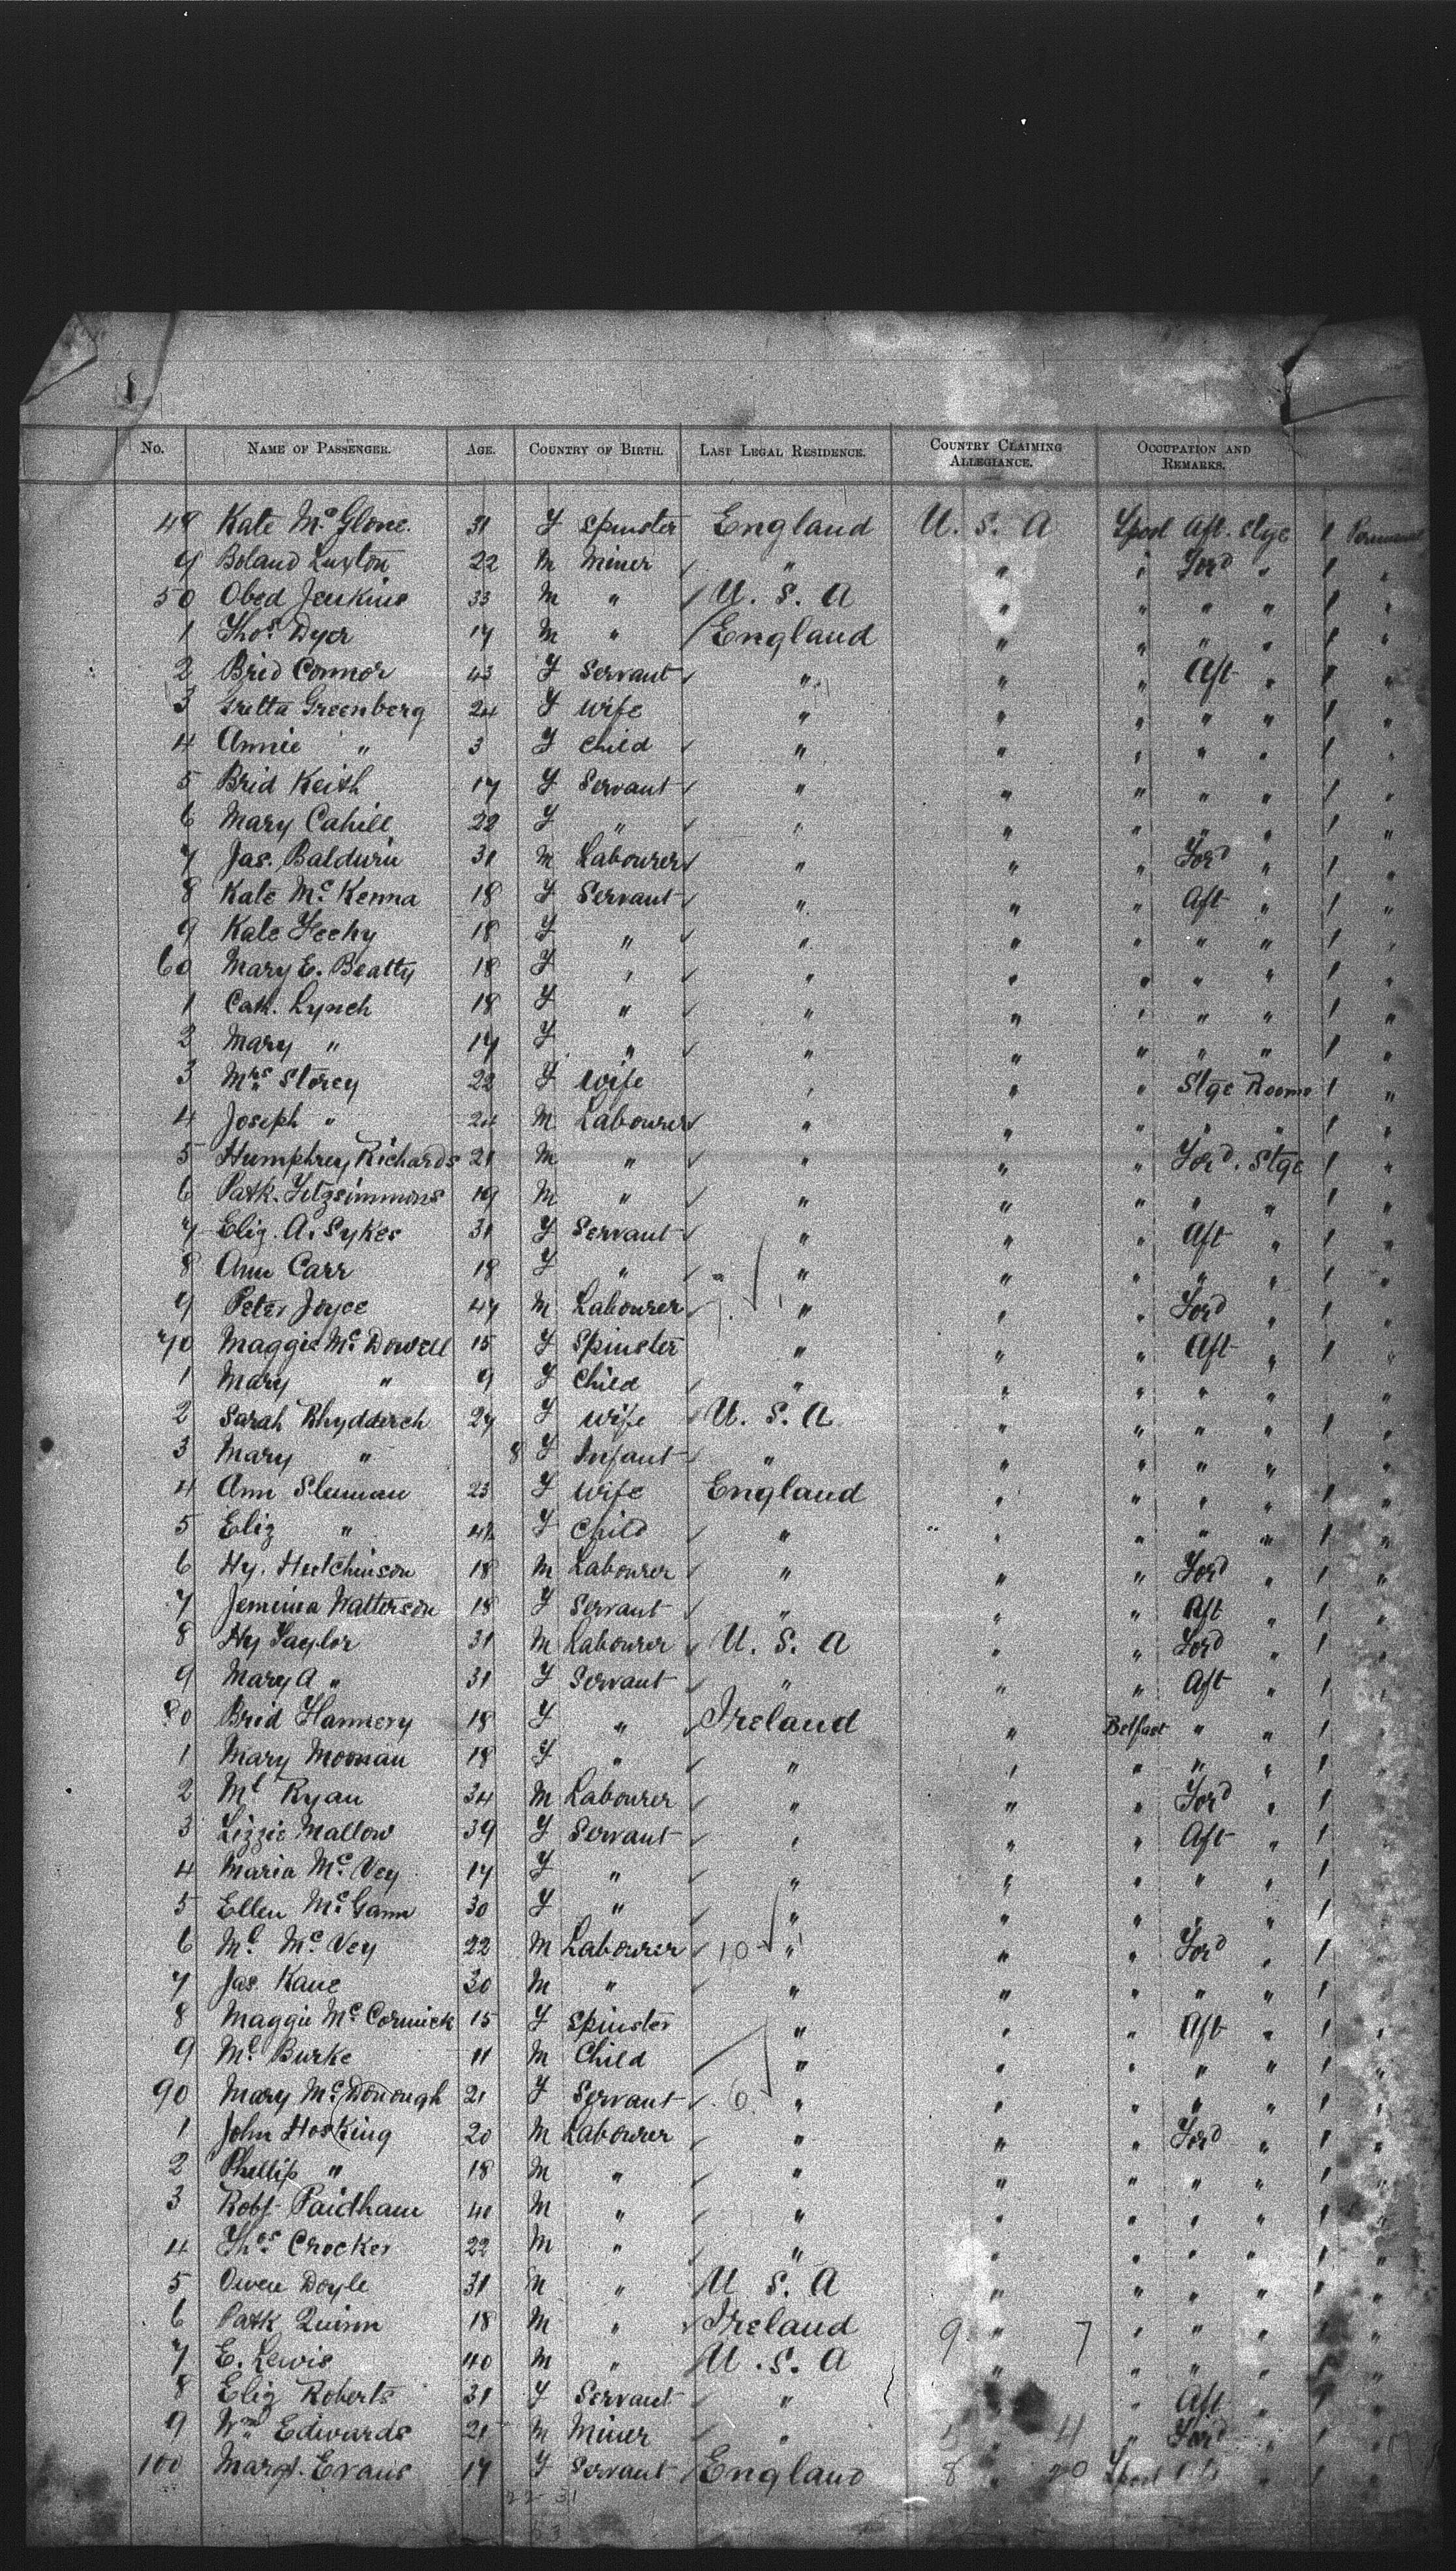 No. NAME OF PASSENGER. AGE. COUNTRY OF BIRTH. LAST LEGAL RESIDENCE. COUNTRY CLAIMING ALLEGIANCE. OCCUPATION AND REMARKS.
48 Kate Mc Glone. 31 F Spinster England U. S. A Lpool Aft. Stge 1 Permanent
9 Boland Luxton 22 M Miner " " " Ford " 1 "
50 Obed Jenkins 33 M " U. S. A " " " " 1 "
1 Thos. Dyer 17 M " England " " " " 1 "
2 Brid Connor 43 F Servant " " " Aft " 1 "
3 Gretta Greenberg 24 F Wife " " " " " 1 "
4 Annie " 3 F Child " " " " " 1 "
5 Brid Keith 17 F Servant " " " " " 1 "
6 Mary Cahill 22 F " " " " " " 1 "
7 Jas. Baldwin 31 M Labourer " " " Ford " 1 "
8 Kate Mc Kenna 18 F Servant " " " Aft " 1 "
9 Kate Feehy 18 F " " " " " " 1 "
60 Mary E. Beatty 18 F " " " " " " 1 "
1 Cath. Lynch 18 F " " " " " " 1 "
2 Mary " 17 F " " " " " " 1 "
3 Mrs Storey 22 F Wife " " " Stge Rooms 1 "
4 Joseph " 24 M Labourer " " " " " 1 "
5 Humphrey Richards 21 M " " " " Ford. Stge 1 "
6 Patk. Fitzsimmons 19 M " " " " " " 1 "
7 Eliz. A. Sykes 31 F Servant " " " Aft " 1 "
8 Ann Carr 18 F " " " " " " 1 "
9 Peter Joyce 47 M Labourer " " " Ford " 1 "
70 Maggie Mc Dowell 15 F Spinster " " " Aft " 1 "
1 Mary " 9 F Child " " " " " "
2 Sarah Rhydderch 27 F Wife U. S. A " " " " 1 "
3 Mary " 8 F Infant " " " " " "
4 Ann Sluman 23 F Wife England " " " " 1 "
5 Eliz " F Child " " " " " 1 "
6 Hy. Hutchinson 18 M Labourer " " " Ford " 1 "
7 Jemima Watterson 18 F Servant " " " Aft " 1 "
8 Hy Taylor 31 M Labourer U. S. A " " Ford " 1 "
9 Mary A " 31 F Servant " " " Aft " 1 "
80 Brid Flannery 18 F " Ireland " Belfast " " 1 "
1 Mary Moonan 18 F " " " " " " 1 "
2 Ml Ryan 34 M Labourer " " " Ford " 1 "
3 Lizzie Mallow 39 F Servant " " " Aft " 1 "
4 Maria Mc Vey 17 F " " " " " " 1 "
5 Ellen Mc Gann 30 F " " " " " " 1 "
6 Ml Mc Vey 22 M Labourer 10 " " " Ford " 1 "
7 Jas. Kane 30 M " " " " " " 1 "
8 Maggie Mc Cormick 15 F Spinster " " " Aft " 1 "
9 Ml Burke 11 M Child " " " " " 1 "
90 Mary Mc Donough 21 F Servant 6 " " " " " 1 "
1 John Hosking 20 M Labourer " " " Ford " 1 "
2 Phillip " 18 M " " " " " " 1 "
3 Robt Paidham 40 M " " " " " " 1 "
4 Thos. Crocker 22 M " " " " " " 1 "
5 Owen Doyle 31 M " U S. A " " " " 1 "
6 Patk Quinn 18 M " Ireland 9 " 7 " " " 1 "
7 E. Lewis 40 M " U. S. A " " " " 1 "
8 Eliz Roberts 31 F Servant " " " Aft " 1 "
9 Wm Edwards 21 M Miner " " 4 " Ford " 1 "
100 Margt. Evans 17 F Servant England 8 " 20 Lpool Aft " 1 "
22 31